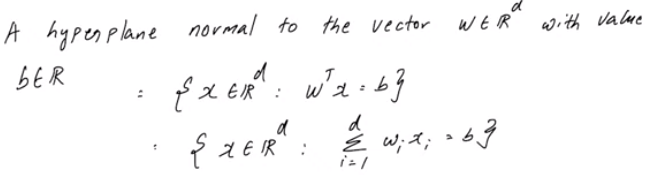 A hyperplane normal to the vector w ∈ ℝ^d with value
b ∈ ℝ : { x ∈ ℝ^d : w^T x = b }
: { x ∈ ℝ^d : ∑_{i=1}^{d} w_i x_i = b }